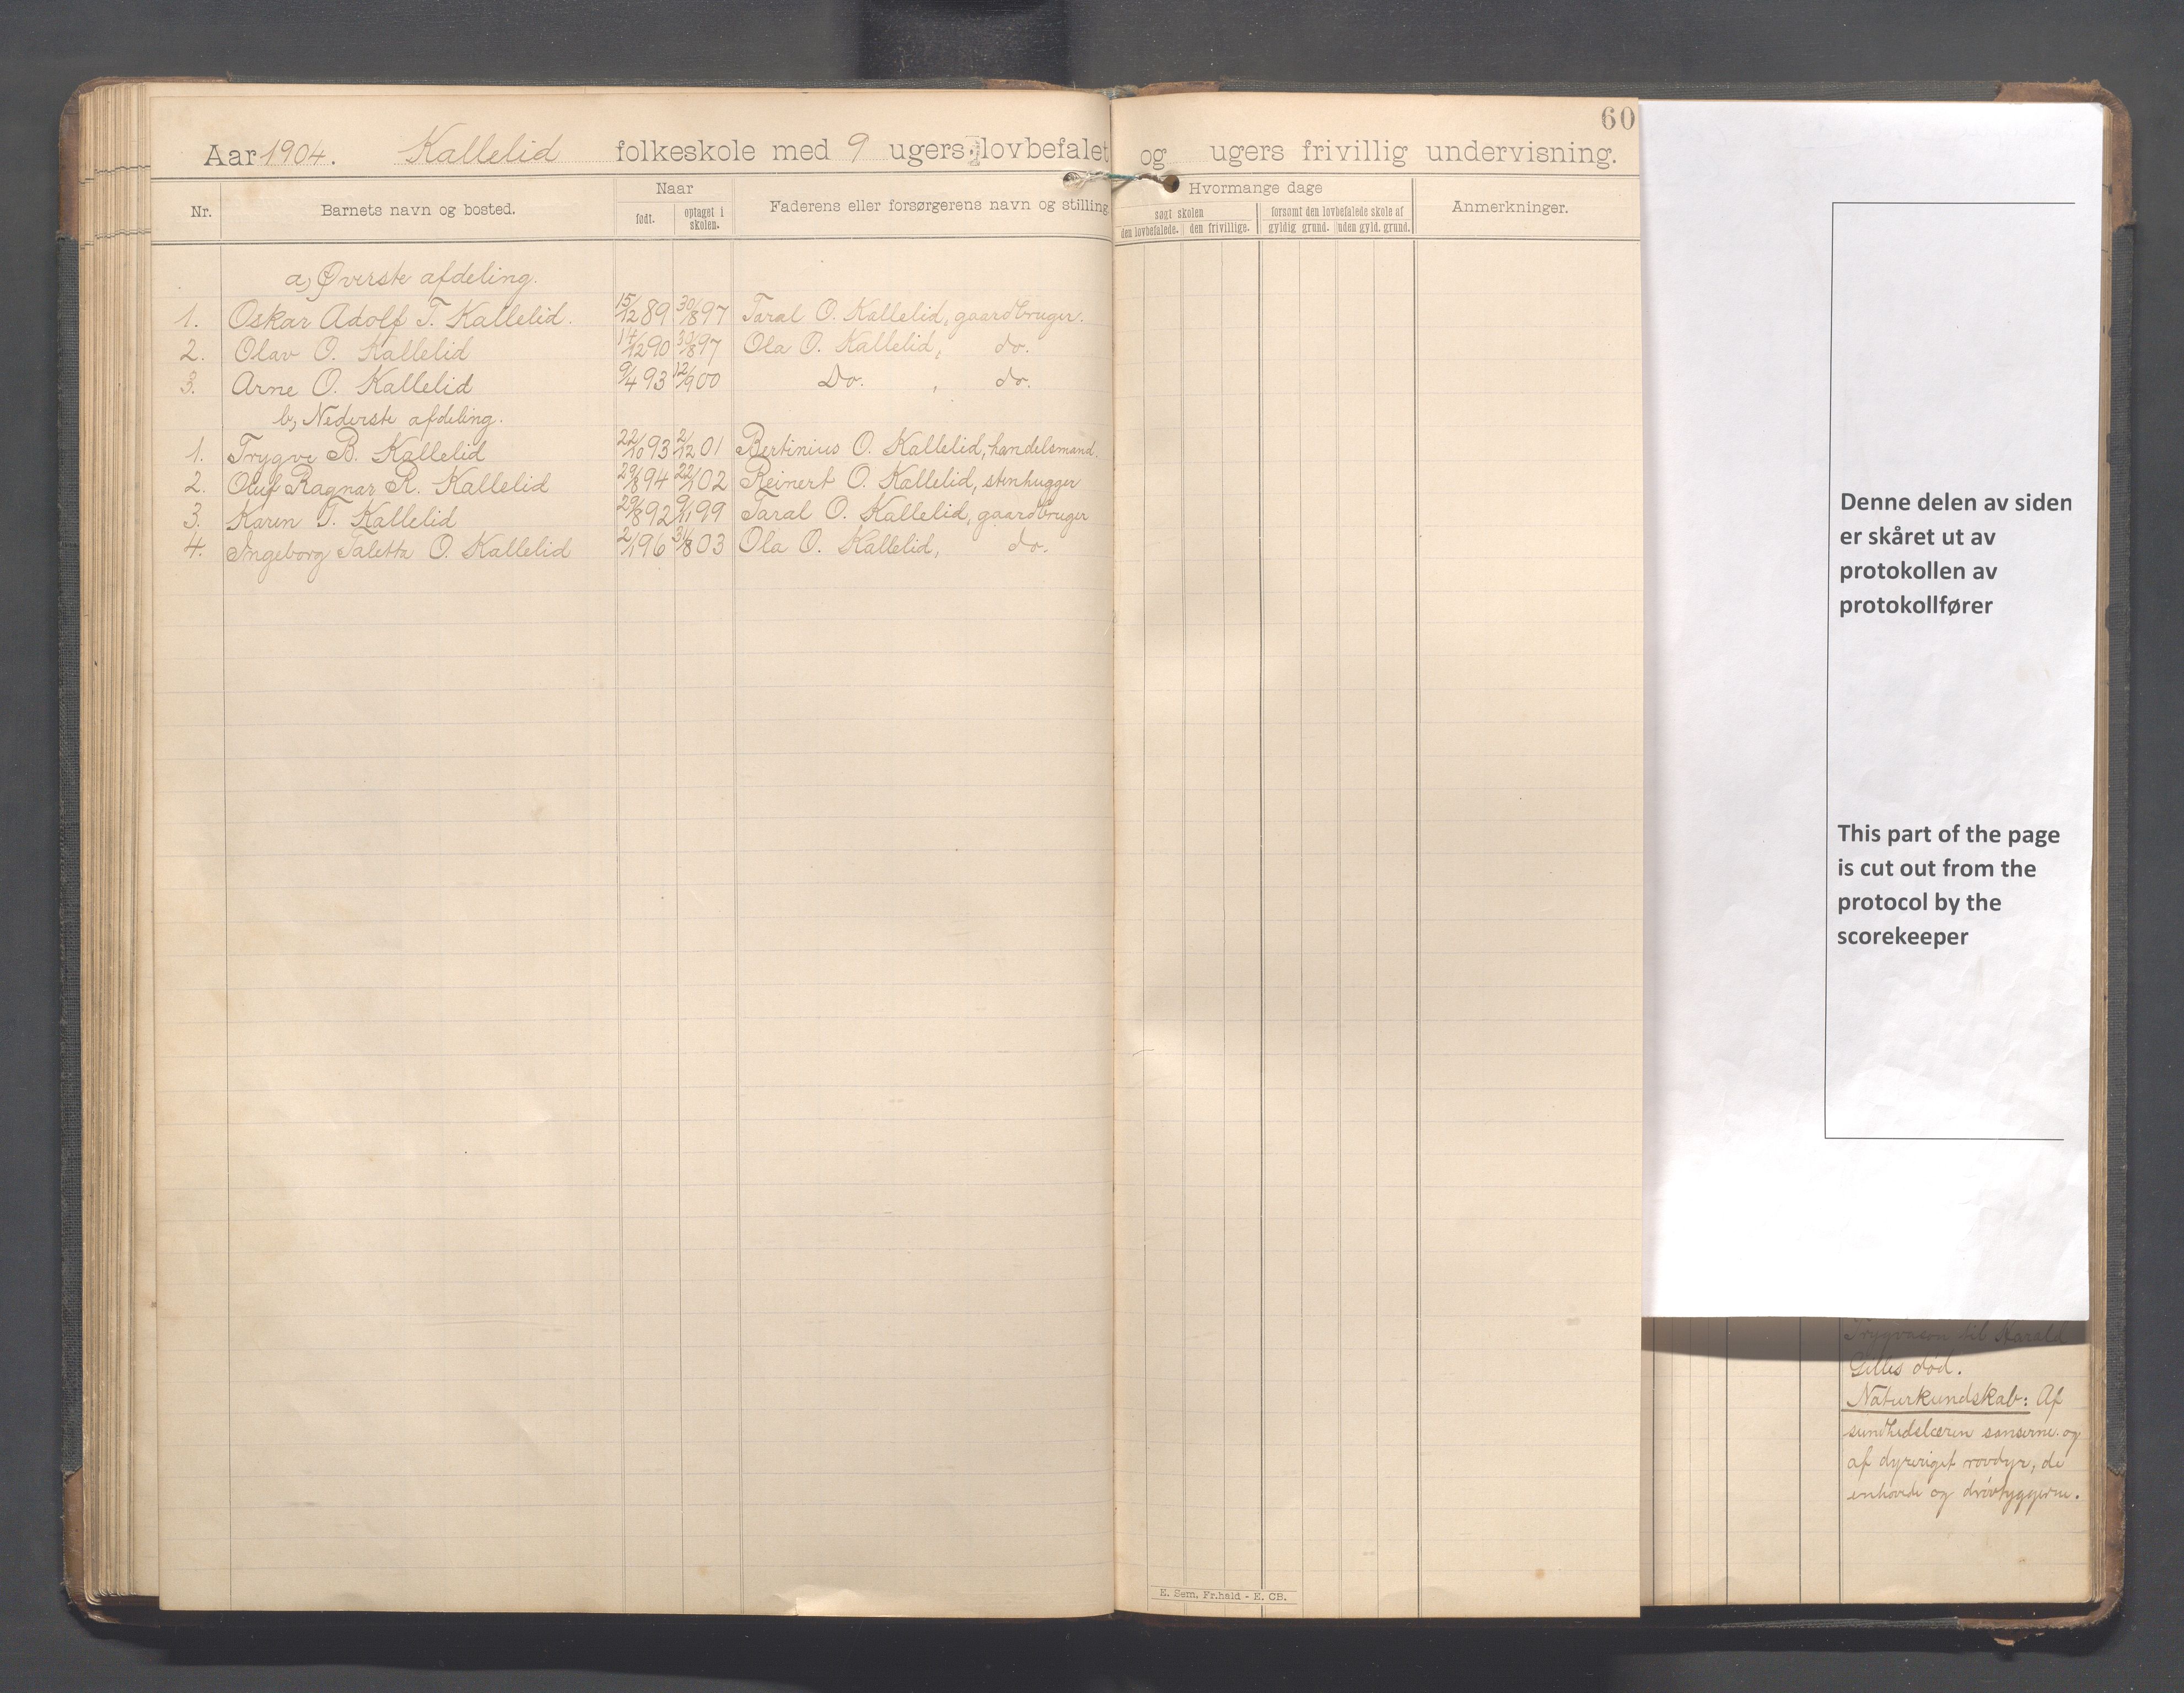 60
Aar 1904. Kallelid folkeskole med 9 ugers lovbefalet og ugers frivillig undervisning.
Nr. Barnets navn og bosted. Naar født. optaget i skolen. Faderens eller forsørgerens navn og stilling. Hvormange dage søgt skolen den lovbefalede. den frivillige. forsømt den lovbefalede skole af gyldig grund. uden gyld. grund. Anmerkninger.
a, Øverste afdeling.
1. Oskar Adolf T. Kallelid. 15/12 89 30/8 97 Taral O. Kallelid, gaardbruger.
2. Olav O. Kallelid 14/12 90 30/8 97 Ola O. Kallelid, do.
3. Arne O. Kallelid 9/4 93 12/9 00 Do. , do.
b, Nederste afdeling.
1. Trygve B. Kallelid 22/10 93 2/12 01 Bertinius O. Kallelid, handelsmand.
2. Oluf Ragnar R. Kallelid 29/8 94 22/1 02 Reinert O. Kallelid, stenhugger
3. Karen T. Kallelid 29/8 92 9/11 99 Taral O. Kallelid, gaardbruger
4. Ingeborg Taletta O. Kallelid 2/1 96 31/8 03 Ola O. Kallelid, do.
E. Sem. Fr.hald - E. CB.
Denne delen av siden
er skåret ut av
protokollen av
protokollfører
This part of the page
is cut out from the
protocol by the
scorekeeper
Trygvason til Harald
Gilles død.
Naturkundskab: Af
sundhedslæren sanserne og
af dyreriget rovdyr, de
enhovede og drøvtyggerne.